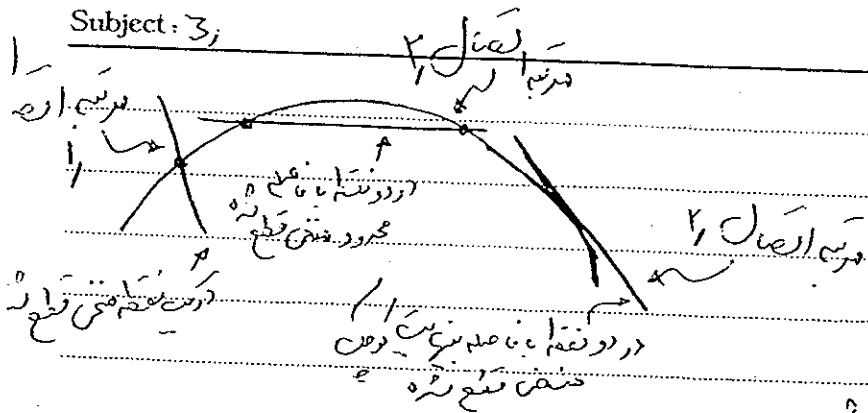 Subject: 3,
مرتبه اتصال ۲,
مرتبه اتصا
۱,
در دو نقطه با فاصله
محدود منحنی قطع شده
مرتبه اتصال ۲,
در یک نقطه منحنی قطع شد
در دو نقطه با فاصله بینهایت کوچک
منحنی قطع شده